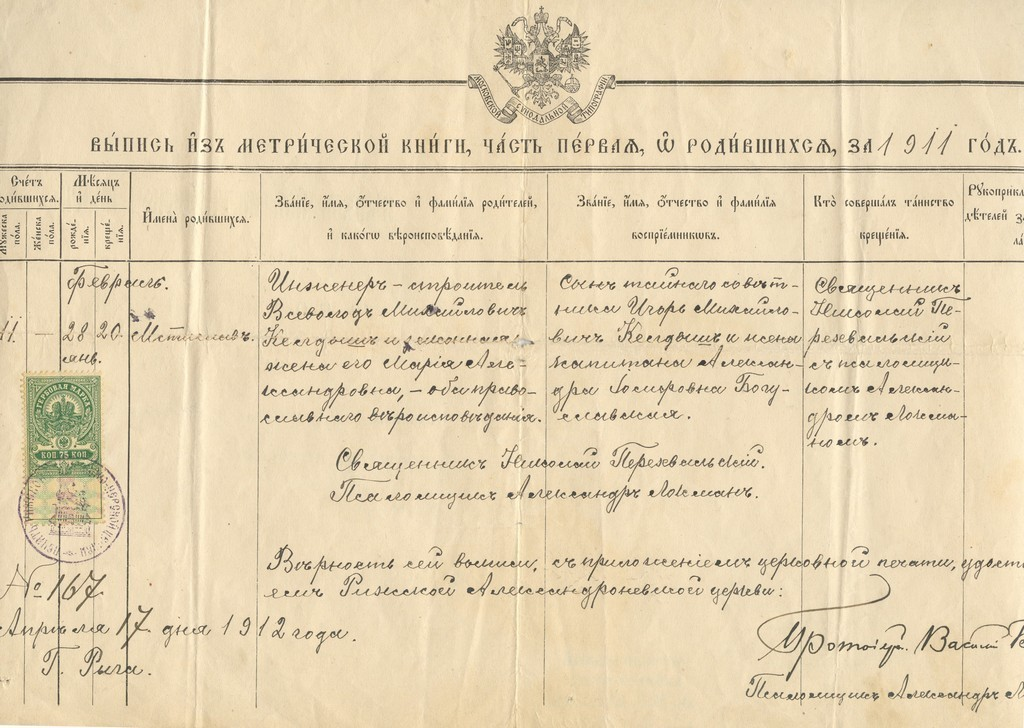 МОСКОВСКОЙ СѴНОДАЛЬНОЙ ТИПОГРАФІИ
ВЫ́ПИСЬ И҆ЗЪ МЕТРИ́ЧЕСКОЙ КНИ́ГИ, ЧА́СТЬ ПЕ́РВАѦ, Ѡ҆ РОДИ́ВШИХСѦ, ЗА 1911 ГО́ДЪ.
Сче́тъ
оди́вшихсѧ.
Мꙋжеска по́ла.
Же́нска по́ла.
Мѣ́сѧцъ
и҆ де́нь
рожде́нїѧ.
креще́нїѧ.
И҆мена̀ роди́вшихсѧ.
Зва́нїе, и҆́мѧ, ѻ҆́тчество и҆ фами́лїѧ роди́телей,
и҆ како́гѡ вѣроисповѣ́данїѧ.
Зва́нїе, и҆́мѧ, ѻ҆́тчество и҆ фами́лїѧ
воспрїе́мникѡвъ.
Кто̀ соверша́лъ та́инство
креще́нїѧ.
Рꙋкоприкл
дѣ́телей за
Февраль.
Инженеръ-строитель
Всеволодъ Михайловичъ
Келдышъ и законная
жена его Марія Але-
ксандровна, - оба право-
славнаго вѣроисповѣданія.
Сынъ тайнаго совѣт-
ника Игорь Михайло-
вичъ Келдышъ и жена
капитана Алексан-
дра Іосифовна Богу-
славская.
Священникъ
Николай Пе-
рехвальскій
съ псаломщи-
комъ Алексан-
дромъ Локма-
номъ.
11. — 28 20 Мстиславъ.
янв.
ГЕРБОВАЯ МАРКА
КОП 75 КОП
Священникъ Николай Перехвальскій.
Псаломщикъ Александръ Локманъ.
Вѣрность сей выписи, съ приложеніемъ церковной печати, удост
емъ Рижской Александроневской церкви:
№ 167.
Апрѣля 17 дня 1912 года.
Г. Рига.
Протоіер. Василій
Псаломщикъ Александръ Л